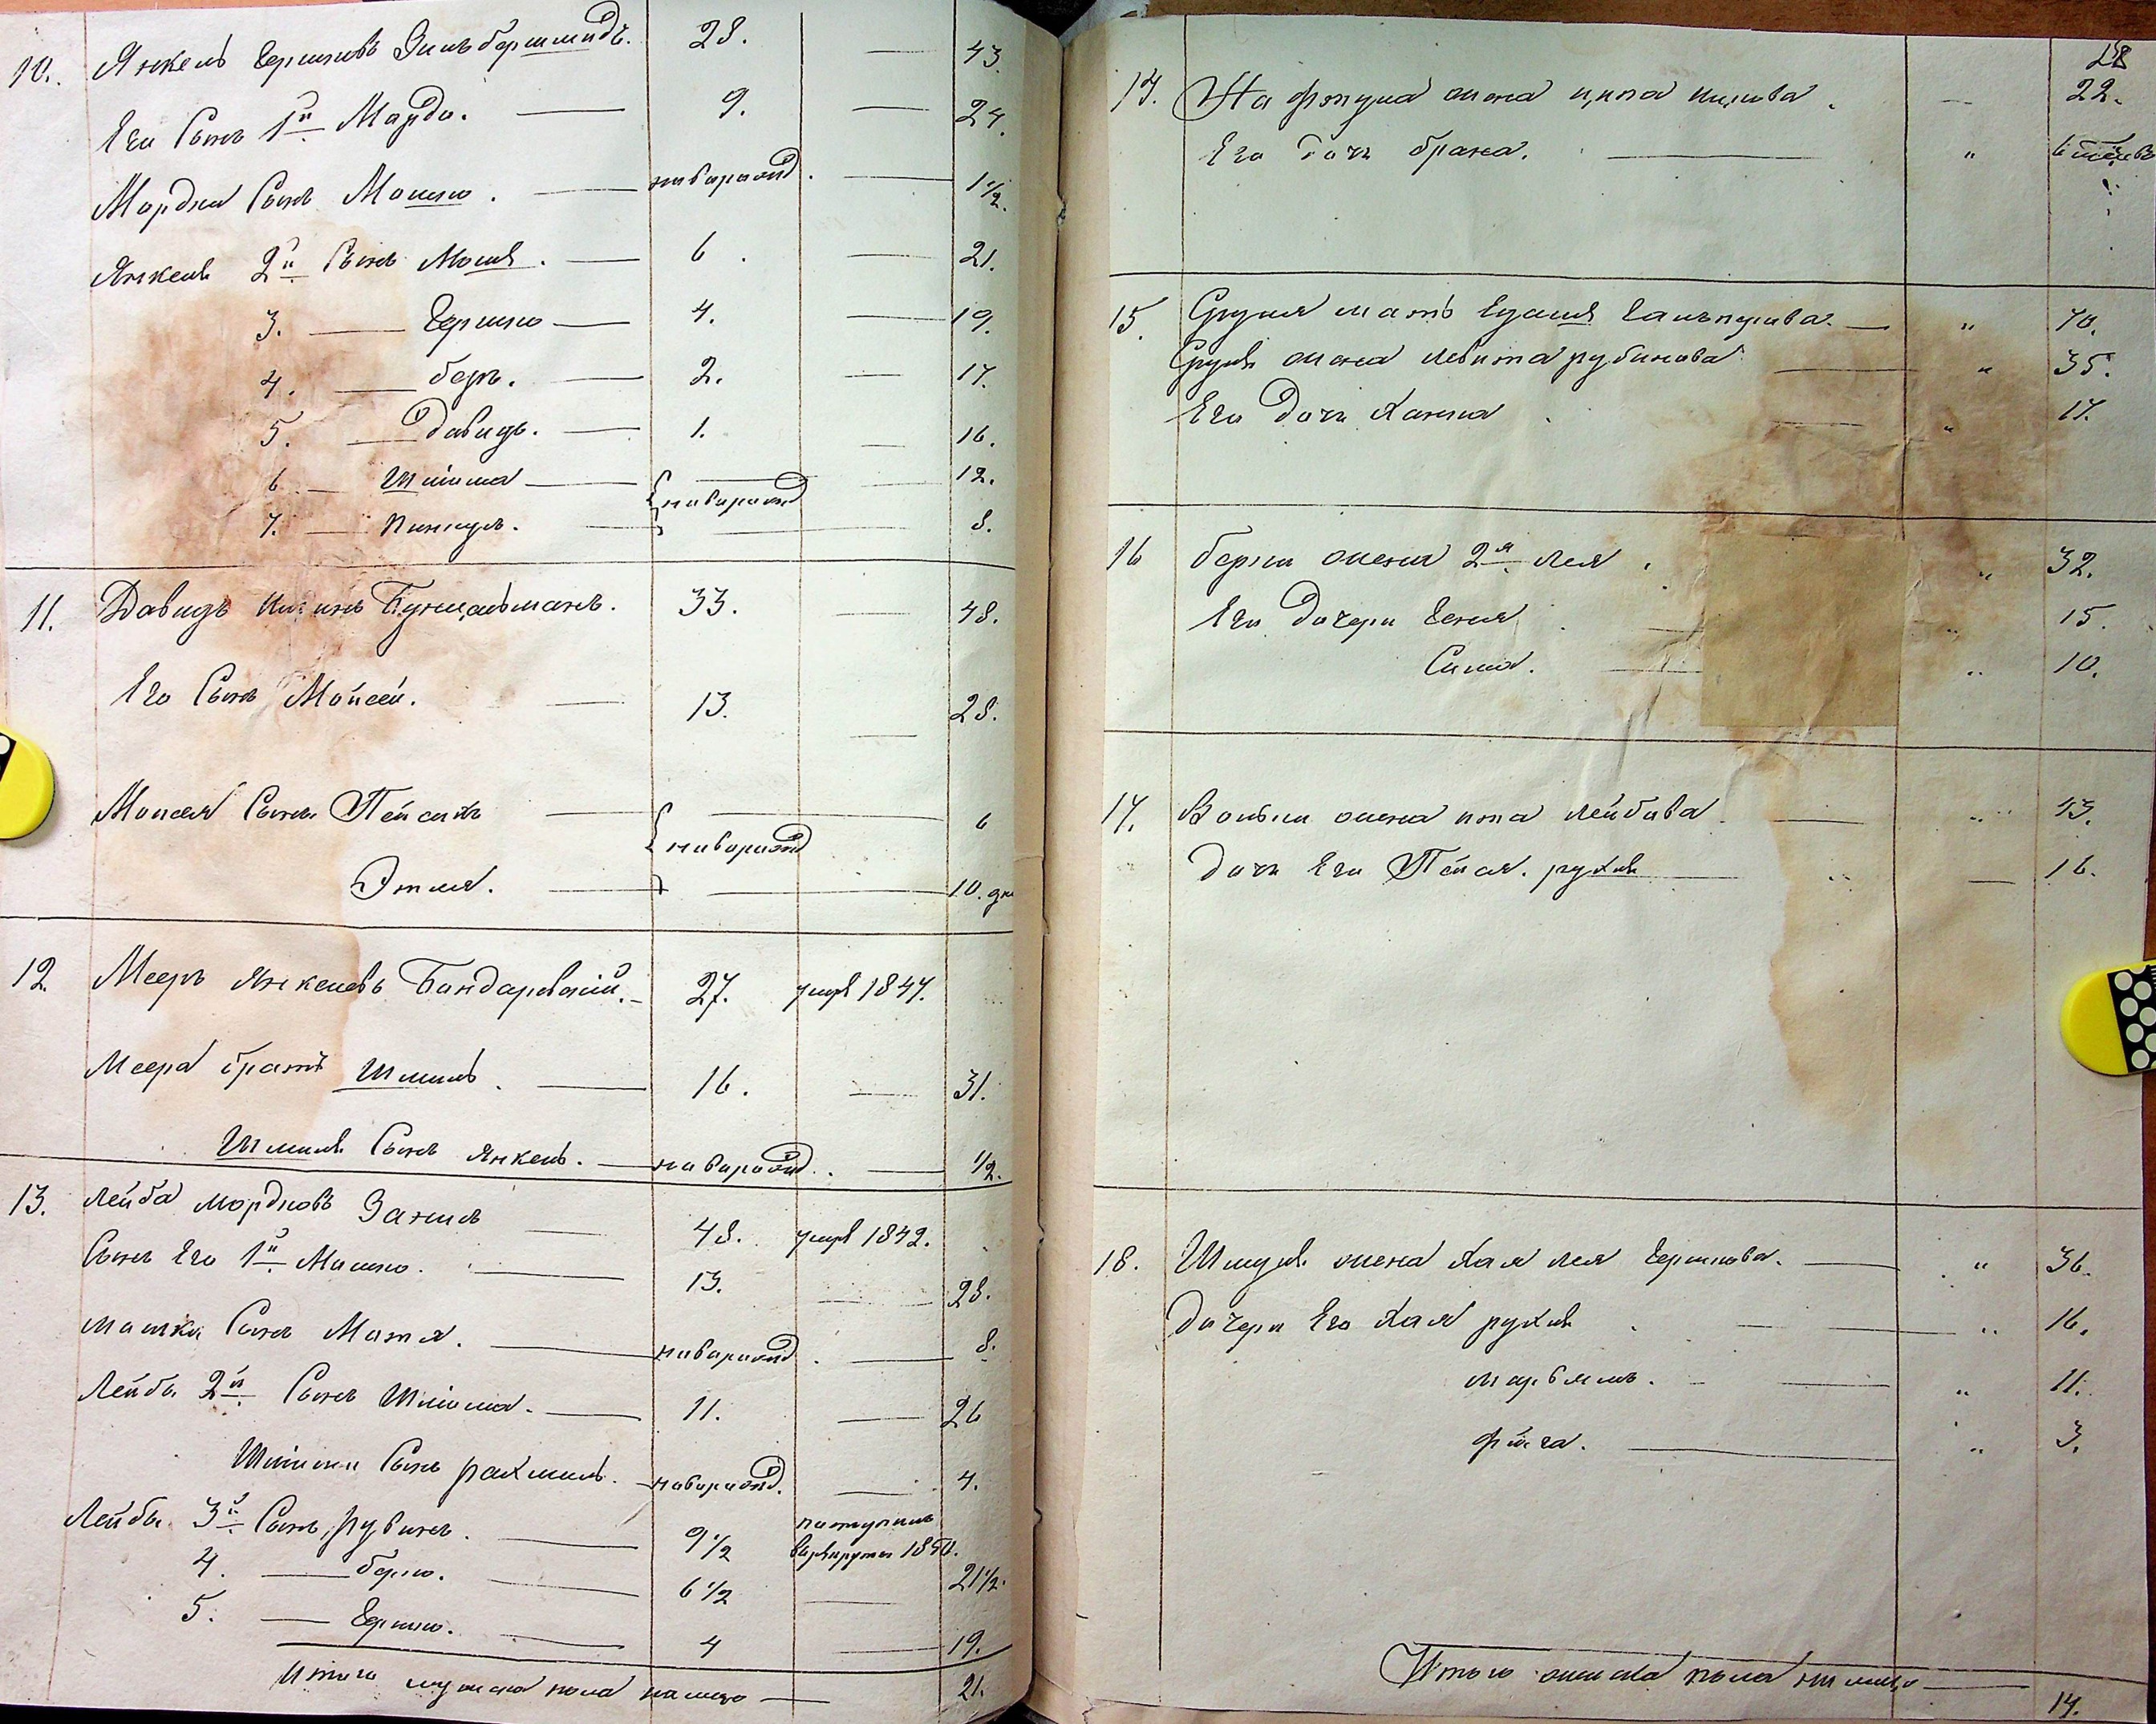 10. Янкель Гершковъ Зильбершмидъ. 28. — 43.
Его Сынъ 1й Мордко. — 9. — 24.
Мордки Сынъ Мошко. — новорожд. — 1 1/2.
Янкеля 2й Сынъ Мошко. — 6. — 21.
3. — Гершко — 4. — 19.
4. — беръ. — 2. — 17.
5. — Давидъ. — 1. — 16.
6 — Шліома — новорожд — 12.
7. — Пинхусъ. — 8.
11. Давидъ Бунцельманъ. 33. — 48.
Его Сынъ Мойсей. — 13. — 28.
Мойсея Сынъ Пейсахъ — новорожд — 6
Этля. — 10. дн
12. Мееръ Янкелевъ Бондаревскій. — 27. умре 1847.
Меера братъ Шмиль. — 16. — 31.
Шмиля Сынъ Янкель. — новорожд. — 1/2.
13. Лейба Мордковъ — 48. умре 1842.
Сынъ Его 1й Мошко. — 13. — 28.
Мошки Сынъ Мотя. — новорожд. — 8.
Лейбы 2й Сынъ Шліома. — 11. — 26
Шліомы Сынъ рахмиль. — новорожд. — 4.
Лейбы 3й Сынъ рувинъ. — 9 1/2 поступилъ
в рекруты 1850.
4. — берко. — 6 1/2 — 21 1/2.
5. — Гершко. — 4 — 19.
Итого мужска пола налицо — 21.
28
14. жена — 22.
Его дочь брана. — "
15. Сруля мать — " 70.
Сруля жена рубинова — " 35.
Его Дочь Ханна — " 17.
16 берки жена 2я Лея. " 32.
Его Дочери Геня. — " 15.
Сима. — " 10.
17. Вольки жена Лейбова. — " 43.
дочь Его Пейся. рухля — " — 16.
18. Шмуля жена Хая Лея Гершкова. — " 36.
Дочери Его Хая рухля. — " 16.
марьямъ. — " 11.
фейга. — " 3.
Итого женска пола на лицо — 14.